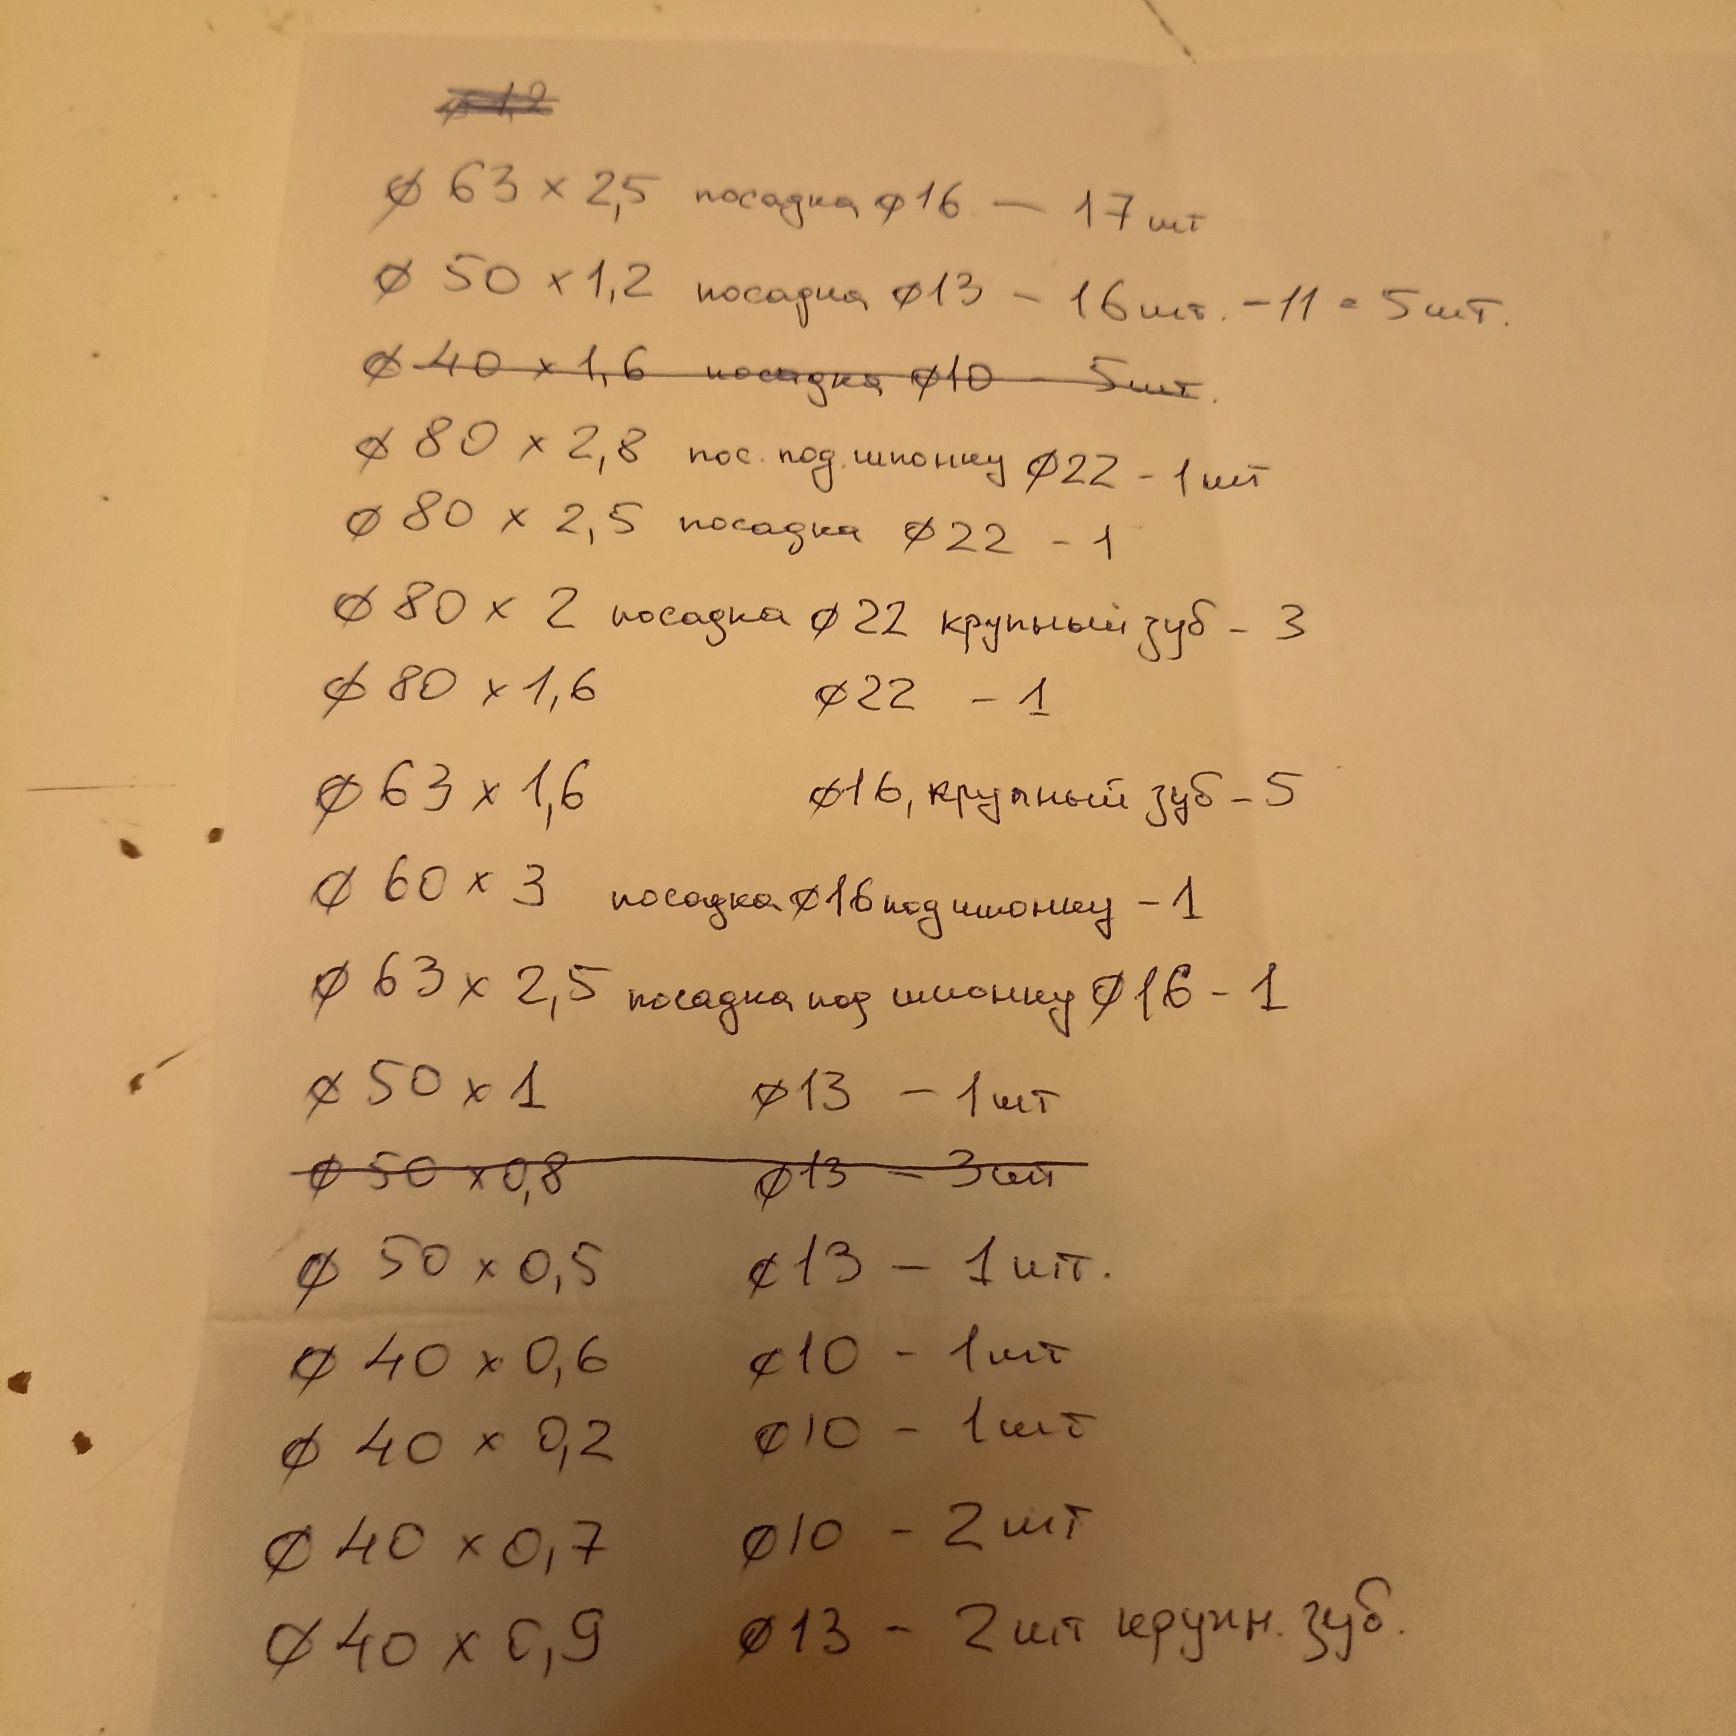 ø 1,2
ø 63 x 2,5 посадка ø16 — 17шт
ø 50 x 1,2 посадка ø13 - 16шт. -11 = 5шт.
ø 40 x 1,6 посадка ø10 - 5шт.
ø 80 x 2,8 пос. под. шпонку ø22 - 1шт
ø 80 x 2,5 посадка ø22 - 1
ø 80 x 2 посадка ø22 крупный зуб - 3
ø 80 x 1,6 ø22 - 1
ø 63 x 1,6 ø16, крупный зуб - 5
ø 60 x 3 посадка ø16 под шпонку - 1
ø 63 x 2,5 посадка под шпонку ø16 - 1
ø 50 x 1 ø13 - 1шт
ø 50 x 0,8 ø13 - 3шт
ø 50 x 0,5 ø13 - 1шт.
ø 40 x 0,6 ø10 - 1шт
ø 40 x 0,2 ø10 - 1шт
ø 40 x 0,7 ø10 - 2шт
ø 40 x 0,9 ø13 - 2шт крупн. зуб.